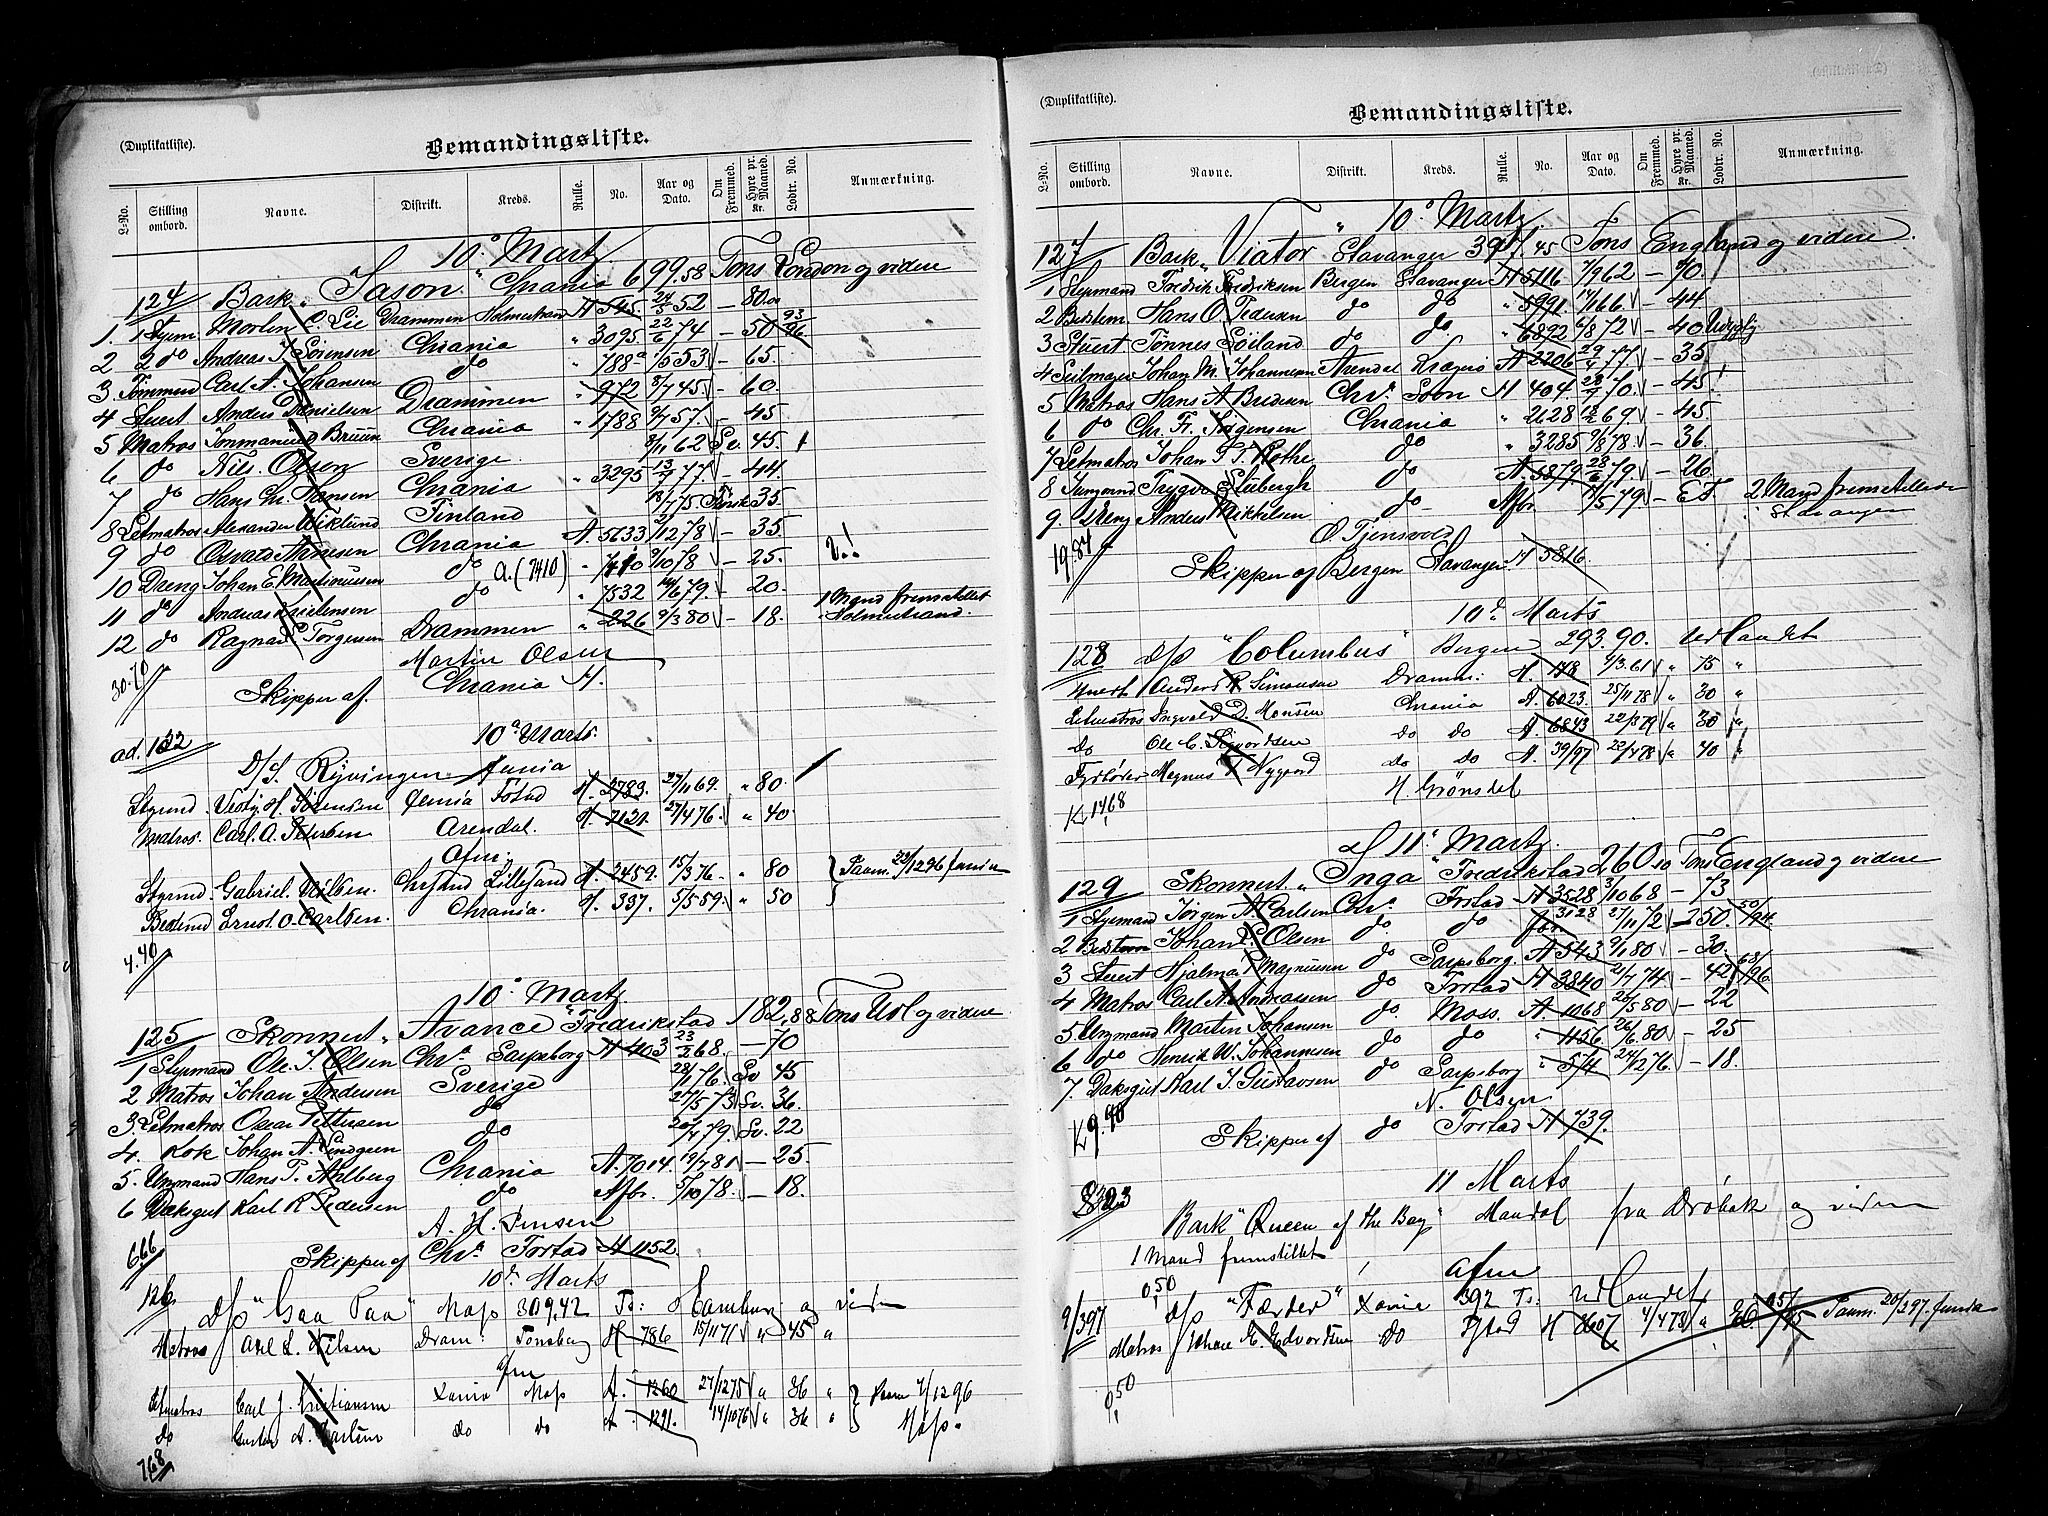 (Duplikatliste).
Bemandingsliste.
L-No. Stilling ombord. Navne. Distrikt. Kreds. Rulle. No. Aar og Dato. Om Fremmed. Hyre pr. Maaned. Kr. Lodtr. No. Anmærkning.
10' Martz
124 Bark "Jason" Chrania 699.58 Tons London og videre
1. 1 Styrm C. Lie Drammen Holmestran A 545 24/3 52 – 80.00
2 2 do Andreas J. Sørensen Chrania " 3095 22/6 74 – 50 93/96
3 Tømmermd Carl A. Johansen do " 788 1/5 53 – 65.
4 Stuert Anders Danielsen Drammen " 972 8/7 45 – 60
5 Matros Immanuel Bruun Chrania " 1788 9/7 57. – 45
6 do Nils Olsen Sverige 8/11 62 Sv. 45.
7 do Hans Chr. Hansen Chrania " 3295 13/9 77. – 44.
8 Letmatros Alexander Wiklund Finland 18/1 75 Finsk 35
9 do Osvald Arnesen Chrania A. 5633 2/12 78 – 35
10 Dreng Johan E. Martinussen do A. (7410) 7410 9/10 78 – 25.
11 do Andreas do " 7532 14/6 79. – 20. 1 Mand fremstillet
12 do Ragnar Torgersen Drammen " 226 9/3 80 – 18. Holmestrand.
Martin Olsen
30.70
Skipper af. Chrania A.
ad. 122
10d Marts.
D/S. Ryvingen
Styrmd A. 2789. 27/11 69. " 80.
Matros. Carl. A. Petersen Arendal. A. 2121. 27/4 76. " 40
Afm.
Styrmd Gabriel Nilsen. Lillesand A. 2459. 15/3 76. " 80 } Paam. 23/12 96
Ernst O. Carlsen. Chrania. A. 337. 5/5 59. " 50
4.40
10' Martz
125 Skonnert "Avance" Fredrikstad 182,88 Tons Udl og videre
1 Styrmand Ole J. Olsen Chrs. Sarpsborg A 403 23/2 68. – 70
2 Matros Johan Andersen Sverige 28/11 76. Sv 45
3. Letmatros Oscar Pettersen do 27/5 73 Sv. 36.
4. Kok Johan A. Lindgren do 20/4 79. Sv. 22
5. Ungmand Hans P. Ahlberg Chrania A. 7014. 19/7 81 – 25.
6 Dæksgut Karl R. Pedersen do Afbr. 5/10 78. – 18.
A. H. Jensen
6.66
Skipper af Chrs. Frstad A 1152.
10d Marts
126 D/S "Gaa Paa" Moss 309,42 Ts: Hamburg og viden
Matros Axel L. Nilsen Dram: Tønsberg A 786 15/11 71 " 45 "
Afm
Letmatros Carl J. Kristiansen Xania Moss A. 1260 27/12 75 " 36 " } Paam 7/12 96
do Gustav A. Karlsen do do A. 1291. 14/10 76 " 36 " } Moss.
7.68
(Duplikatliste).
Bemandingsliste.
L-No. Stilling ombord. Navne. Distrikt. Kreds. Rulle. No. Aar og Dato. Om Fremmed. Hyre pr. Maaned. Kr. Lodtr. No. Anmærkning.
10' Martz
127 Bark "Viator" Stavanger 397.45 Tons England og videre.
1 Styrmand Fredrik Fredriksen Bergen Stavanger A 5116 7/9 62 – 70.
2 Bestem. Hans O. do do " 5991 17/1 66 – 44
3 Stuert Tønnes Søiland do do " 6892 6/8 72 – 40
4 Seilmager Johan M. Johannesen Arendal Kragerø A 2206 29/4 77 – 35
5 Matros Hans A. Chrs. Soon A 404. 28/9 70. – 45
6 do Chr. Fr. Jørgensen Chrania " 2128 12/2 69 – 45
7 Letmatros Johan T. do " 3285 9/8 78. – 36.
8 Jungmand Trygve Stubergh do A. 5879 28/6 79. – 26.
9. Dreng Anders Mikkelsen do Afbr. 19/5 79 – E.F. 2 Mand fremstillede i Stavanger
19.84
O. Tjensvold
Skipper af Bergen Stavanger A 5816.
10d Marts
128 D/S "Columbus" Bergen 293.90. Udlandet
Anders R. Simonsen Dramm: A. 178 9/3 61 " 75 "
Letmatros Ingvald D. Monsen Chrania A. 6023. 25/11 78 " 30 "
Do Ole C. Sigvordsen do do A. 6843 22/5 79 " 30 "
Fyrbøder Magnus T. Nygård do do A. 39/97 22/4 78 " 40 "
H. Grønstel
K 14,68
d 11' Martz.
129 Skonnert "Inga" Fredrikstad 260,10 Tons England og videre
1 Styrmand Jørgen A. Carlsen Chrs. Frstad A 3528 3/10 68 – 73
2 Bestem Johan P. Olsen do do Afbr. 3128 27/11 72 – 50. 50/94.
3 Stuert Hjalmar P. Magnussen do Sarpsborg A 543 9/1 80 – 30.
4 Matros Carl A. Andreassen do Frstad A 3840 21/7 74 – 42 68/96
5 Ungmand Marten Johansen do. Moss. A. 1068 28/5 80 – 22
6 do Henrik W. Johannesen do do " 1156 26/6 80 – 25
7. Dæksgut Karl J. Gustavsen do Sarpsborg " 5/4 24/2 76. – 18.
K 9.90
N. Olsen
Skipper af do Frstad A 739.
11 Marts
Bark "Queen of the Bay" Mandal fra Drøbak og viden
1 Mand fremstillet
0,50
Afm
9/3 97 D/S "Færder" Xania 392 Ts: Udlandet
Matros Johan E. Edvardsen do Fstad A 4/4 78 Paam. 20/2 97.
0,50